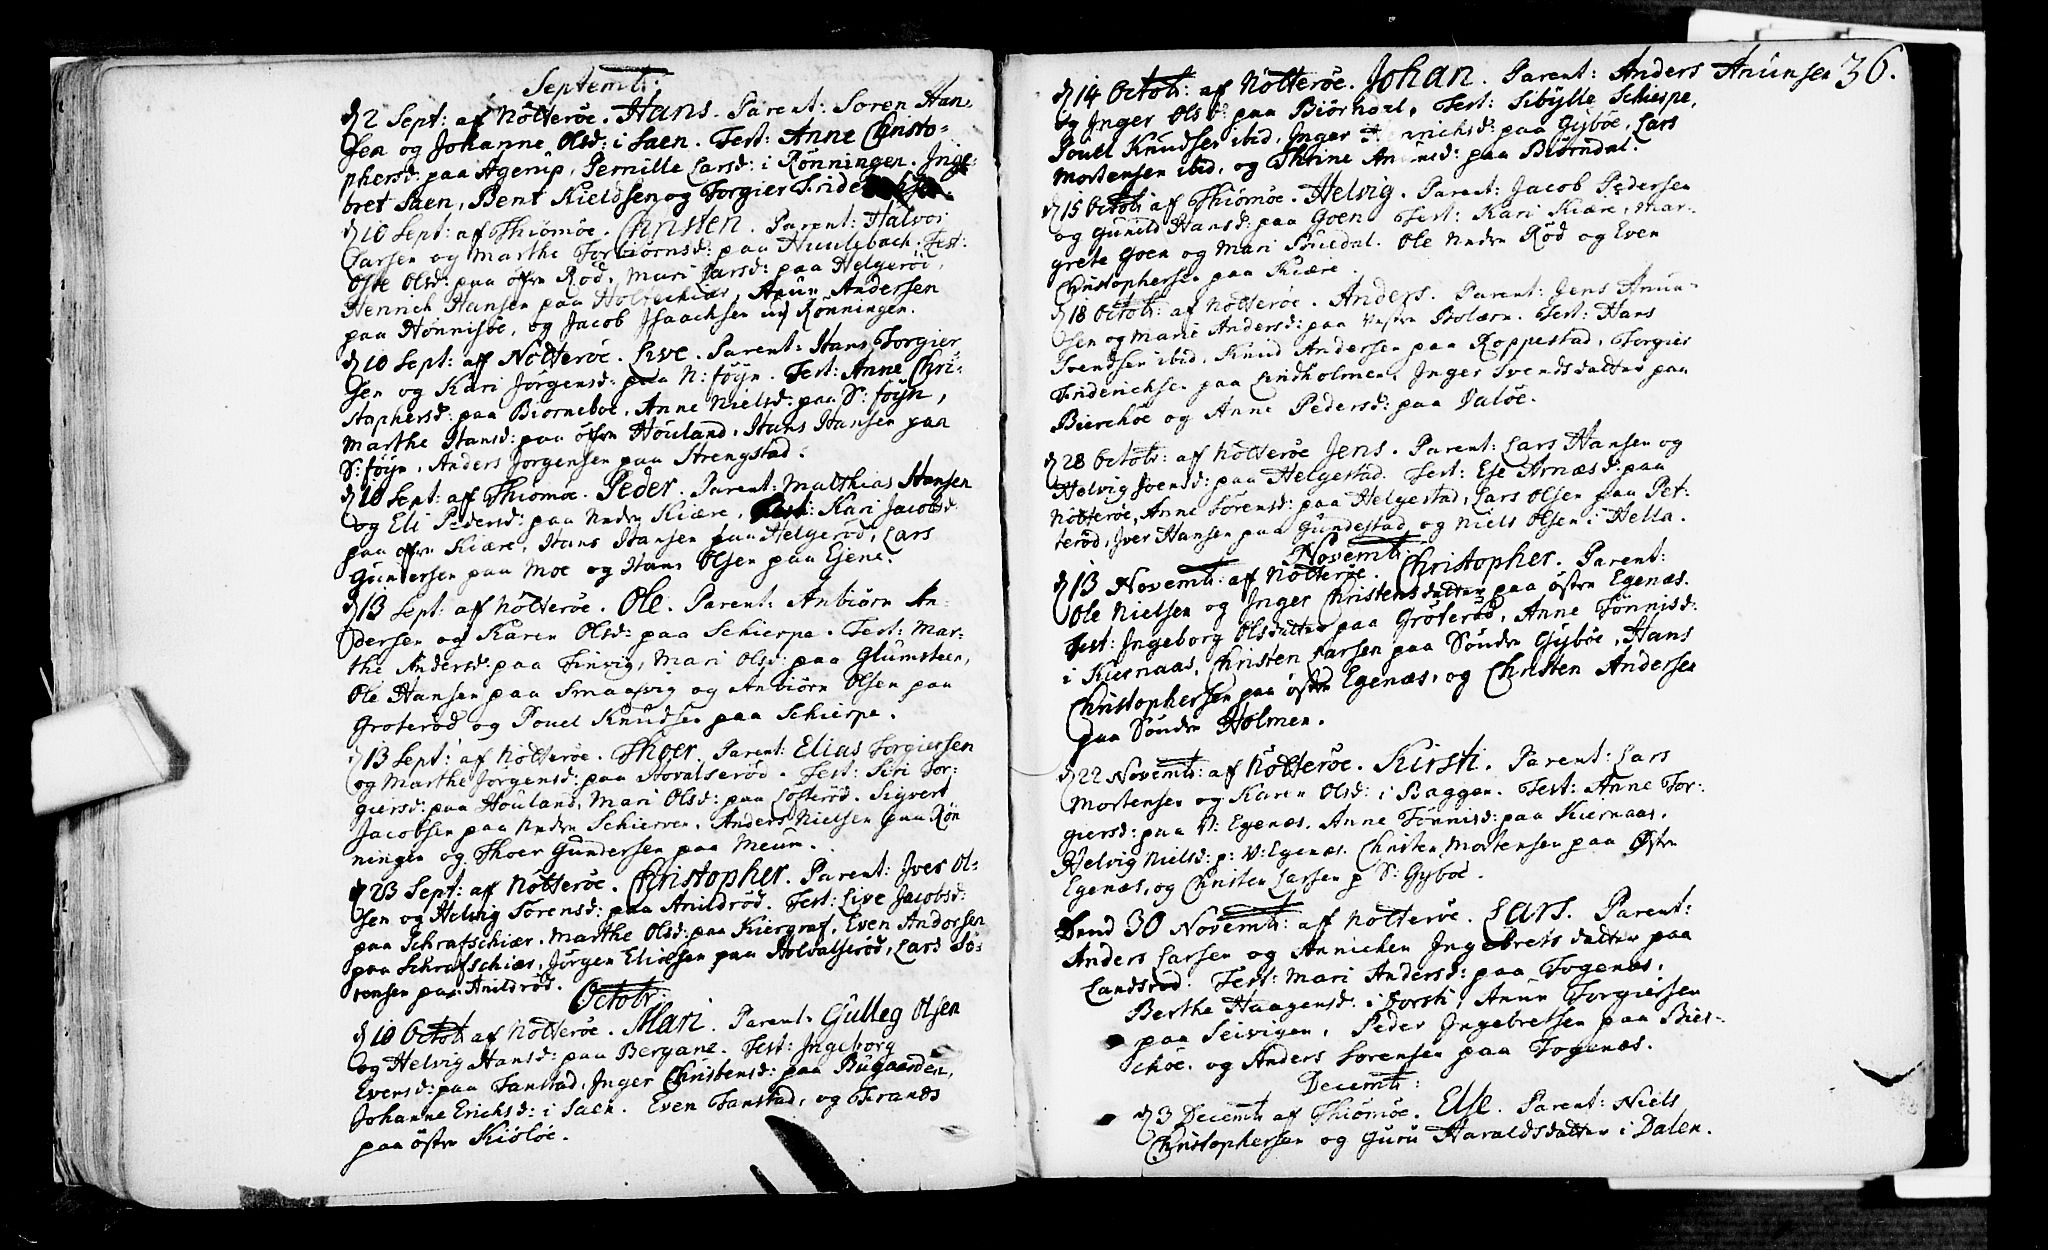 Septembr:
d 2 Sept: af Nötteröe. Hans. Parent: Soren Han-
sen og Johanne Olsd: i Saen. Test: Anne Christo-
phersd: paa Agerup, Pernille Larsd: i Rönningen. Inge-
bret Saen, Bent Kieldsen og Torgier
d 10 Sept: af Thiömöe. Christen. Parent: Halvor
Larsen og Marthe Torbiörnsd: paa Huulebach. Test:
Olsd: paa öfre Röd, Mari Larsd: paa Helgeröd,
Henrich Hansen paa Holtechiær, Anun Andersen
paa Hönnisöe, og Jacob Isaachsen Rönningen.
d 10 Sept: af Nötteröe. Live. Parent: Hans Torgier
sen og Kari Jörgensd: paa N: föyn. Test: Anne Chri-
stophersd: paa Biörneboe, Anne Nielsd: paa S: föyn,
Marthe Hansd: paa öfre Höuland. Hans Hansen paa
S: föyn, Anders Jorgensen paa Strengstad.
d 10 Sept: af Thiömöe. Peder. Parent: Matthias Hansen
og Eli Pedersd: paa Nedre Kiære, Test: Kari Jacobsd:
paa öfre Kiære, Hans Hansen paa Helgeröd, Lars
Gundersen paa Moe og Hans Olsen paa Ejene.
d 13 Sept: af Nötteröe. Ole. Parent: Anbiörn An-
dersen og Karen Olsd: paa Schierpe. Test: Mar-
the Andersd: paa Finvig, Mari Olsd: paa Glumsteen,
Ole Hansen paa Smaasvig og Anbiörn Olsen paa
Groteröd og Povel Knudsen paa Schierpe.
d 13 Sept: af Nötteröe. Thoer. Parent: Elias Torgiersen
og Marthe Jorgensd: paa Hovalseröd. Test: Siri Tor-
giersd: paa Höuland, Mari Olsd: paa Lofteröd. Sigvert
Jacobsen paa Nedre Schierven. Anders Nielsen paa Rön
ningen og Thoer Gundersen paa Meum.
d 23 Sept: af Nötteröe. Christopher. Parent: Iver Ol-
sen og Helvig Sorensd: paa Anildröd. Test: Live Jacobsd:
paa Schrafschiær. Marthe Olsd: paa Kiergraf. Even Andorsen
paa Schrafschiær, Jörgen Eliesen paa Holvalseröd, Lars Sö-
rensen paa Anildröd.
Octobr:
d 10 Octobr: af Nötteröe. Mari. Parent: Gulleg Olsen
og Helvig Hansd: paa Bergane. Test: Ingeborg
Evensd: paa Tanstad, Inger Christensd: paa Bugaarden,
Johanne Erichsd: i Saen. Even Tanstad, og Frands
paa östre Kiölöe.
36.
d 14 Octobr: af Nötteröe. Johan. Parent: Anders Anunsen
og Inger Olsd: paa Biörndal. Test: Sibylle Schierpe,
Povel Knudsen ibid, Inger Henrichsd: paa Gyböe, Lars
Mortensen ibid, og Thrine Anunsd: paa Biörndal.
d 15 Octobr: af Thiömöe. Helvig. Parent: Jacob Pedersen
og Gunild Hansd: paa Goen. Test: Kari Kiære, Mar-
grete Goen og Mari Buedal. Ole Nedre Röd og Even
Christophersen paa Kiære.
d 18 Octobr: af Nötteröe. Anders. Parent: Jens Anun-
sen og Marie Andersd: paa Vestre Bolærn. Test: Hans
Svendsen ibid, Knud Andersen paa Roppestad, Torgier
Friderichsen paa Lindholmen, Inger Svendsdatter paa
Bierchöe og Anne Pedersd: paa Valöe.
d 28 Octobr: af Nötteröe Jens. Parent: Lars Hansen og
Helvig Soensd: paa Helgestad. Test: Else Arnæsd: paa
Nötteröe, Anne Sorensd: paa Helgestad, Lars Olsen paa Pet-
teröd, Iver Hansen paa Gundestad og Niels Olsen i Hella.
Novembr:
d 13 Novembr: af Nötteröe. Christopher. Parent:
Ole Nielsen og Inger Christensdatter paa östre Egenæs.
Test: Ingeborg Olsdatter paa Gröteröd, Anne Tönnisd:
i Kiernaas, Christen Larsen paa Söndre Gyböe, Hans
Christophersen paa östre Egenæs, og Christen Andersen
paa Söndre Holmen.
d 22 Novembr: af Nötteröe. Kirsti. Parent: Lars
Mortensen og Karen Olsd: i Baggen. Test: Anne Tor-
giersd: paa V: Egenæs. Anne Tönnisd: paa Kiernaas.
Helvig Nielsd: p: V: Egenæs. Christen Mortensen paa Östre
Egenæs, og Christen Larsen p S: Gyböe.
Dend 30 Novembr: af Nötteröe. Lars. Parent:
Anders Larsen og Annichen Ingebretsdatter paa
Landsröd. Test: Mari Andersd: paa Togenæs,
Berthe Haagensd: i Torsti, Anun Torgiersen
paa Seivigen, Peder Ingebretsen paa Bier-
chöe. og Anders Sorensen paa Togenæs.
Decembr:
d 3 Decembr af Thiömöe. Else. Parent: Niels
Christophersen og Guru Haraldsdatter i Dalen.